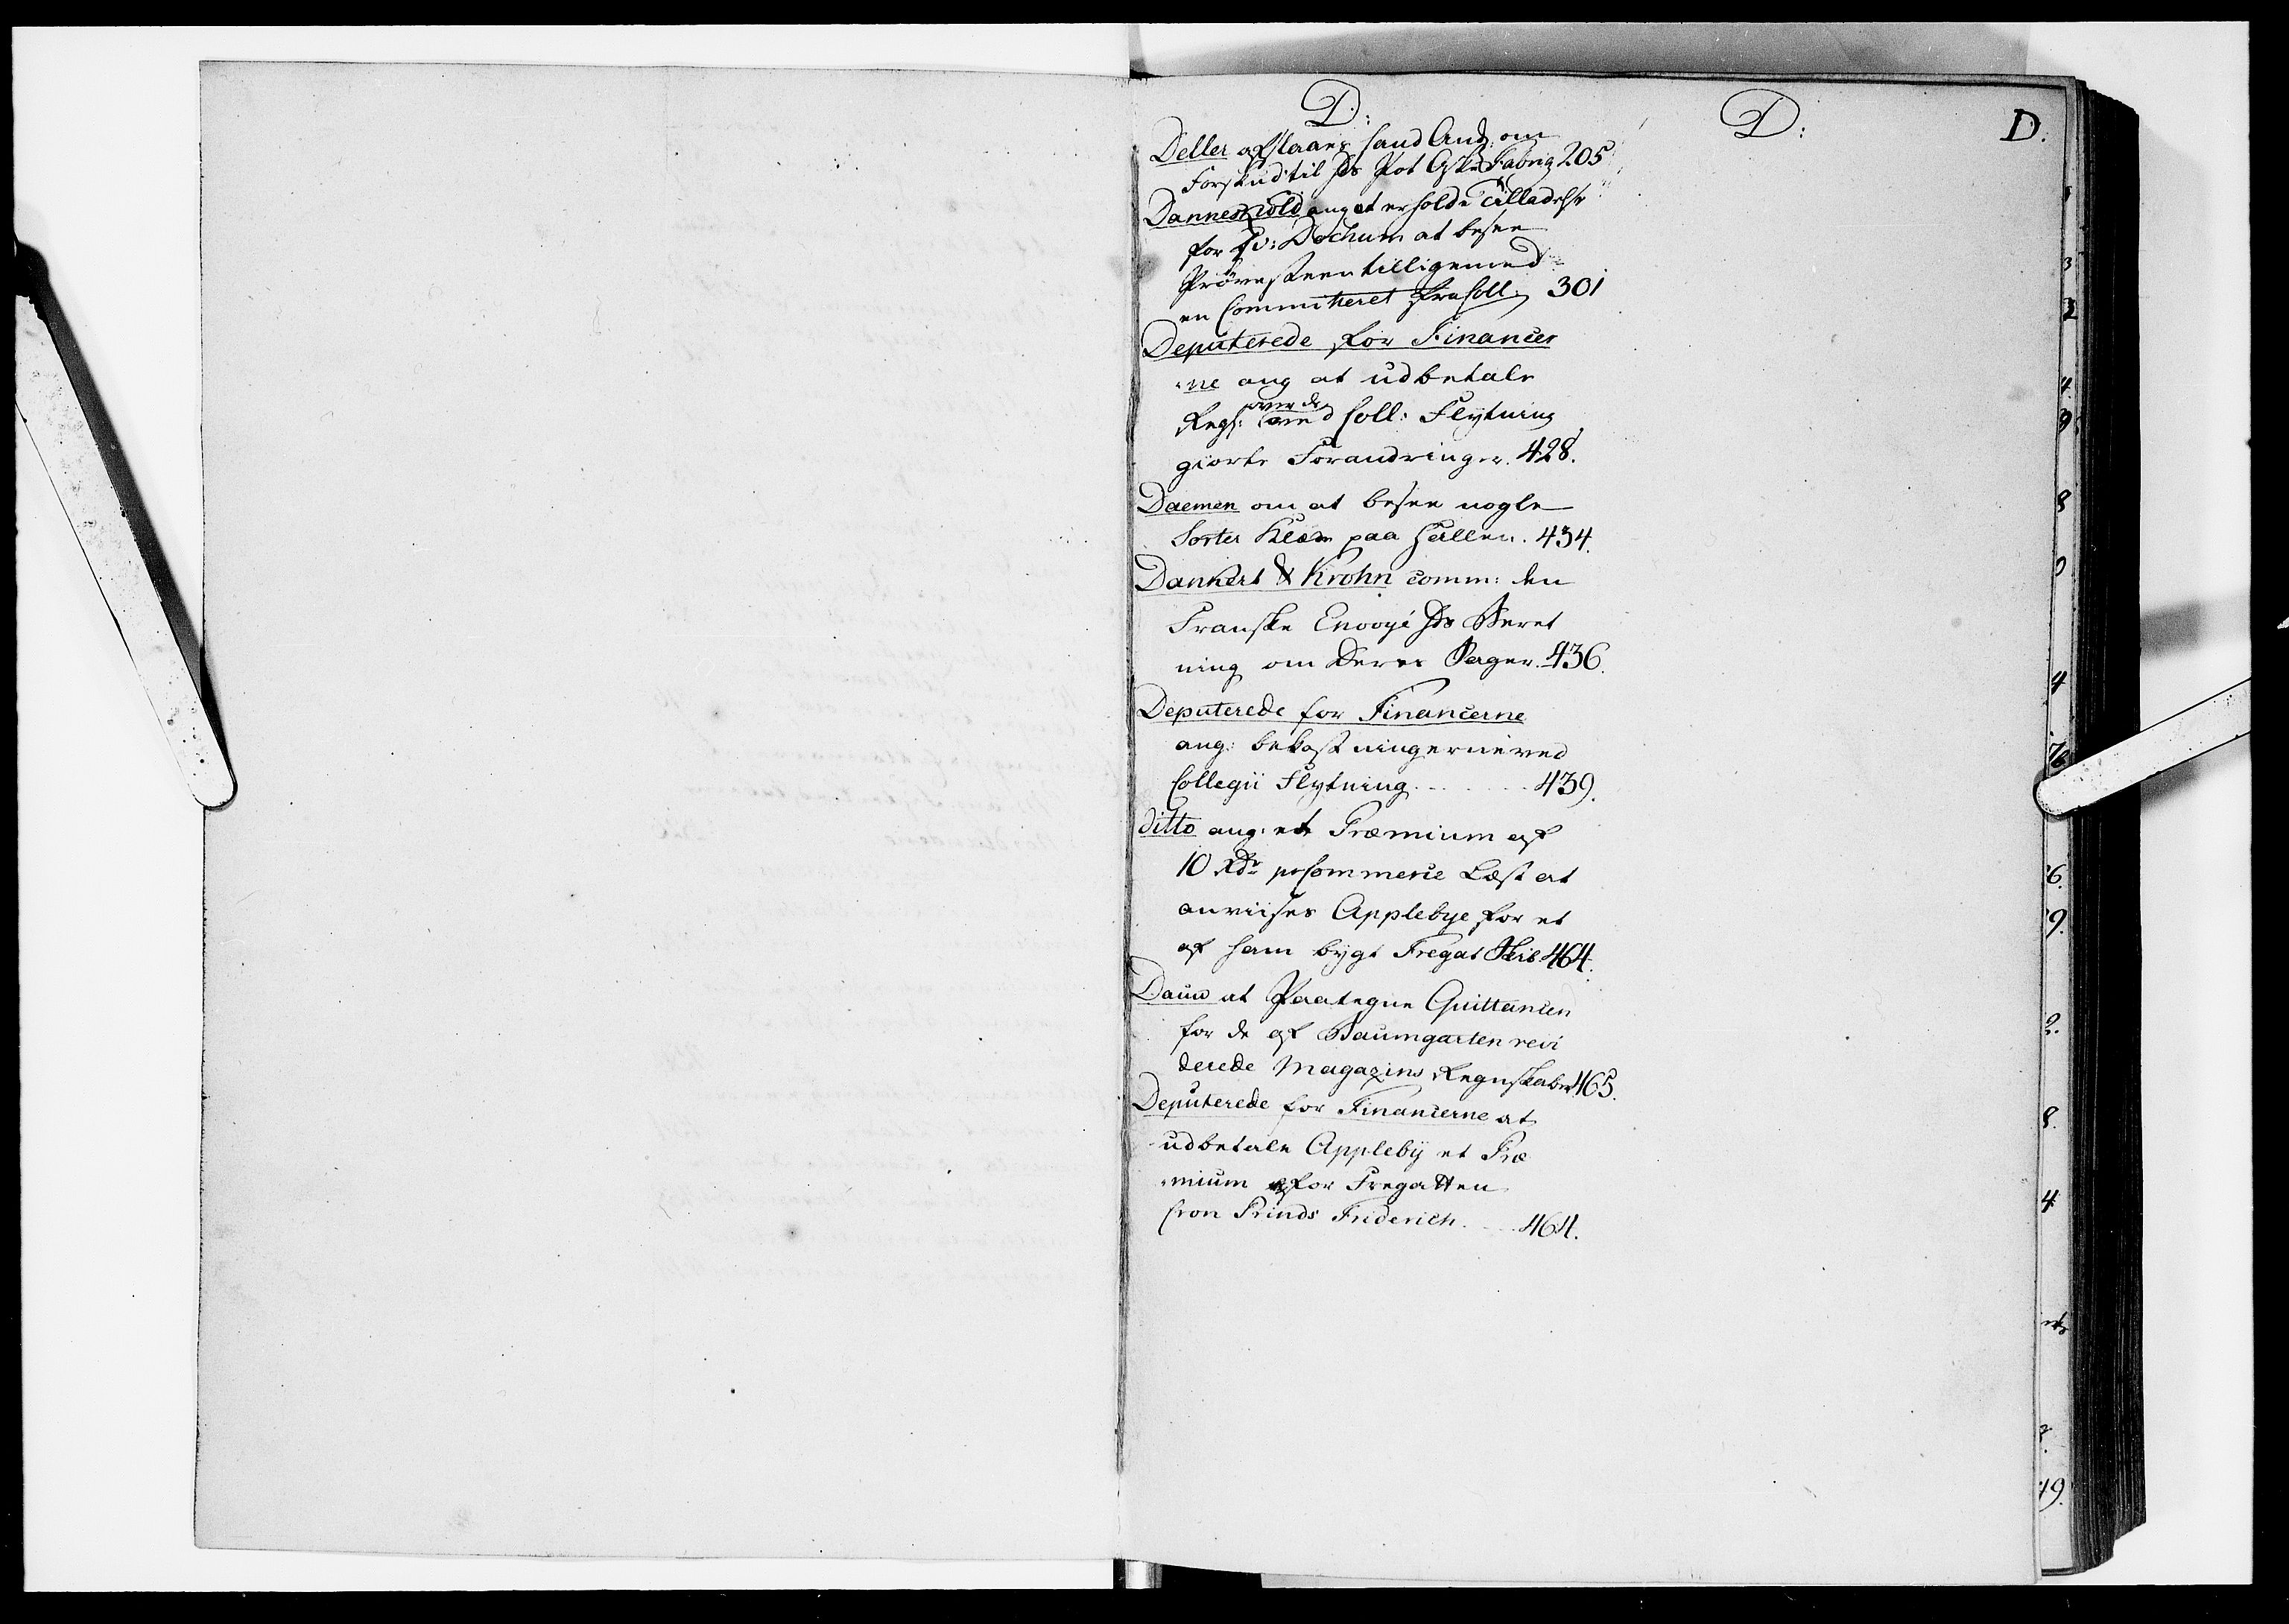 D:
D:
D.
Deller afslaaes hand Ands: om
Forskud til Pot Aske Fabriq 205
Danneskiold ang at erholde Tilladelse
for Dochum at besee
Prövesteen tilligemed
en Committeret fra Coll: 301
Deputerede for Financer
ne ang at udbetale
over de
Regn: ved Coll: Flytning
giorte Forandringer. 428.
Daemen om at besee nogle
Sorter Klæde paa Hallen. 434.
Dankert & Krohn comm: den
Franske Envoyé Beret
ning om deres Sager. 436.
Deputerede for Financerne
ang: bekostningerne ved
Collegii Flytning. 439.
ditto ang: et Præmium af
10 Rdr pr Commerce Læst at
anviises Applebye for et
af ham bygt Fregat Skib 464.
Daue at Paategne Quittancen
for de af Baumgarten revi
derede Magazins Regnskaber 465.
Deputerede for Financerne at
udbetale Appleby et Præ
mium for Fregatten
Cron Prinds Friderich. 464.